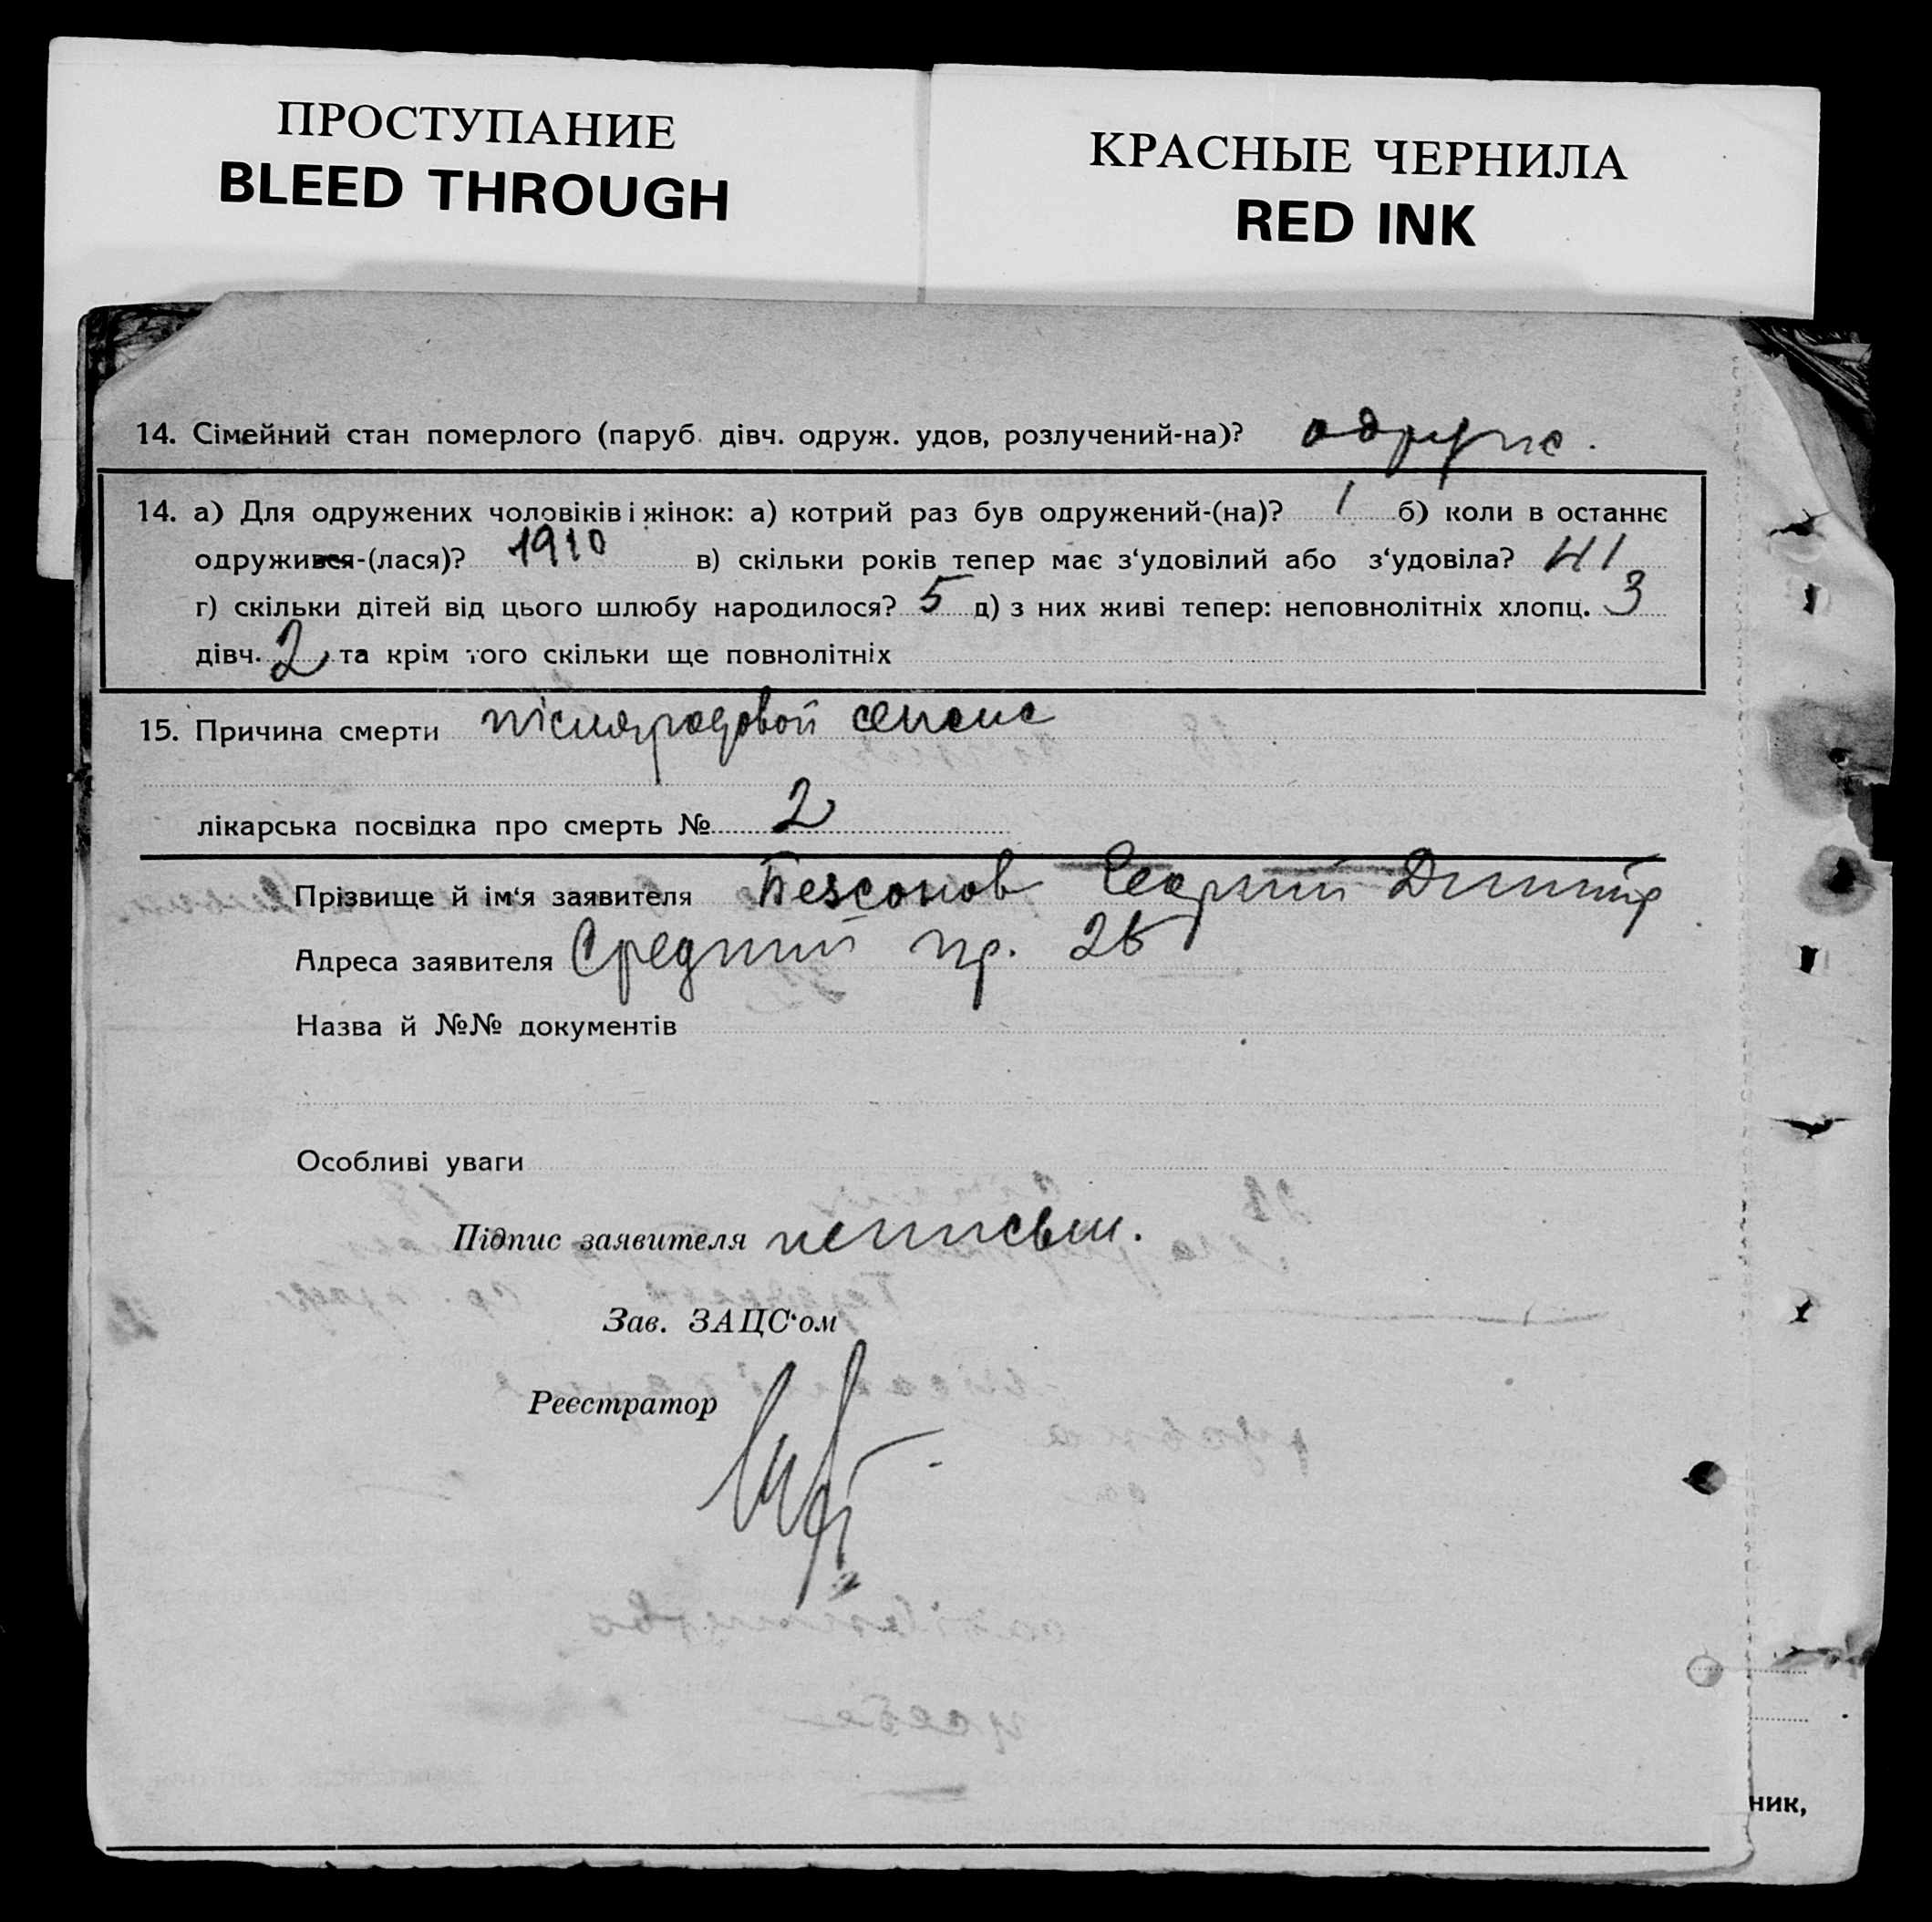 ПРОСТУПАНИЕ
BLEED THROUGH
КРАСНЫЕ ЧЕРНИЛА
RED INK
14. Сімейний стан померлого (паруб. дівч. одруж. удов, розлучений-на)? одруж.
14. а) Для одружених чоловіків і жінок: а) котрий раз був одружений-(на)? 1 б) коли в останнє
одружився-(лася)? 1910 в) скільки років тепер має з‘удовілий або з‘удовіла? 41
г) скільки дітей від цього шлюбу народилося? 5 д) з них живі тепер: неповнолітніх хлопц. 3
дівч. 2 та крім того скільки ще повнолітніх
15. Причина смерти післяродовой сепсис
лікарська посвідка про смерть № 2
Прізвище й ім‘я заявителя Безсонов Георгий Дмитр
Адреса заявителя Средний пр. 26
Назва й №№ документів
Особливі уваги
Підпис заявителя неписьм.
Зав. ЗАЦС‘ом
Реєстратор
ник,